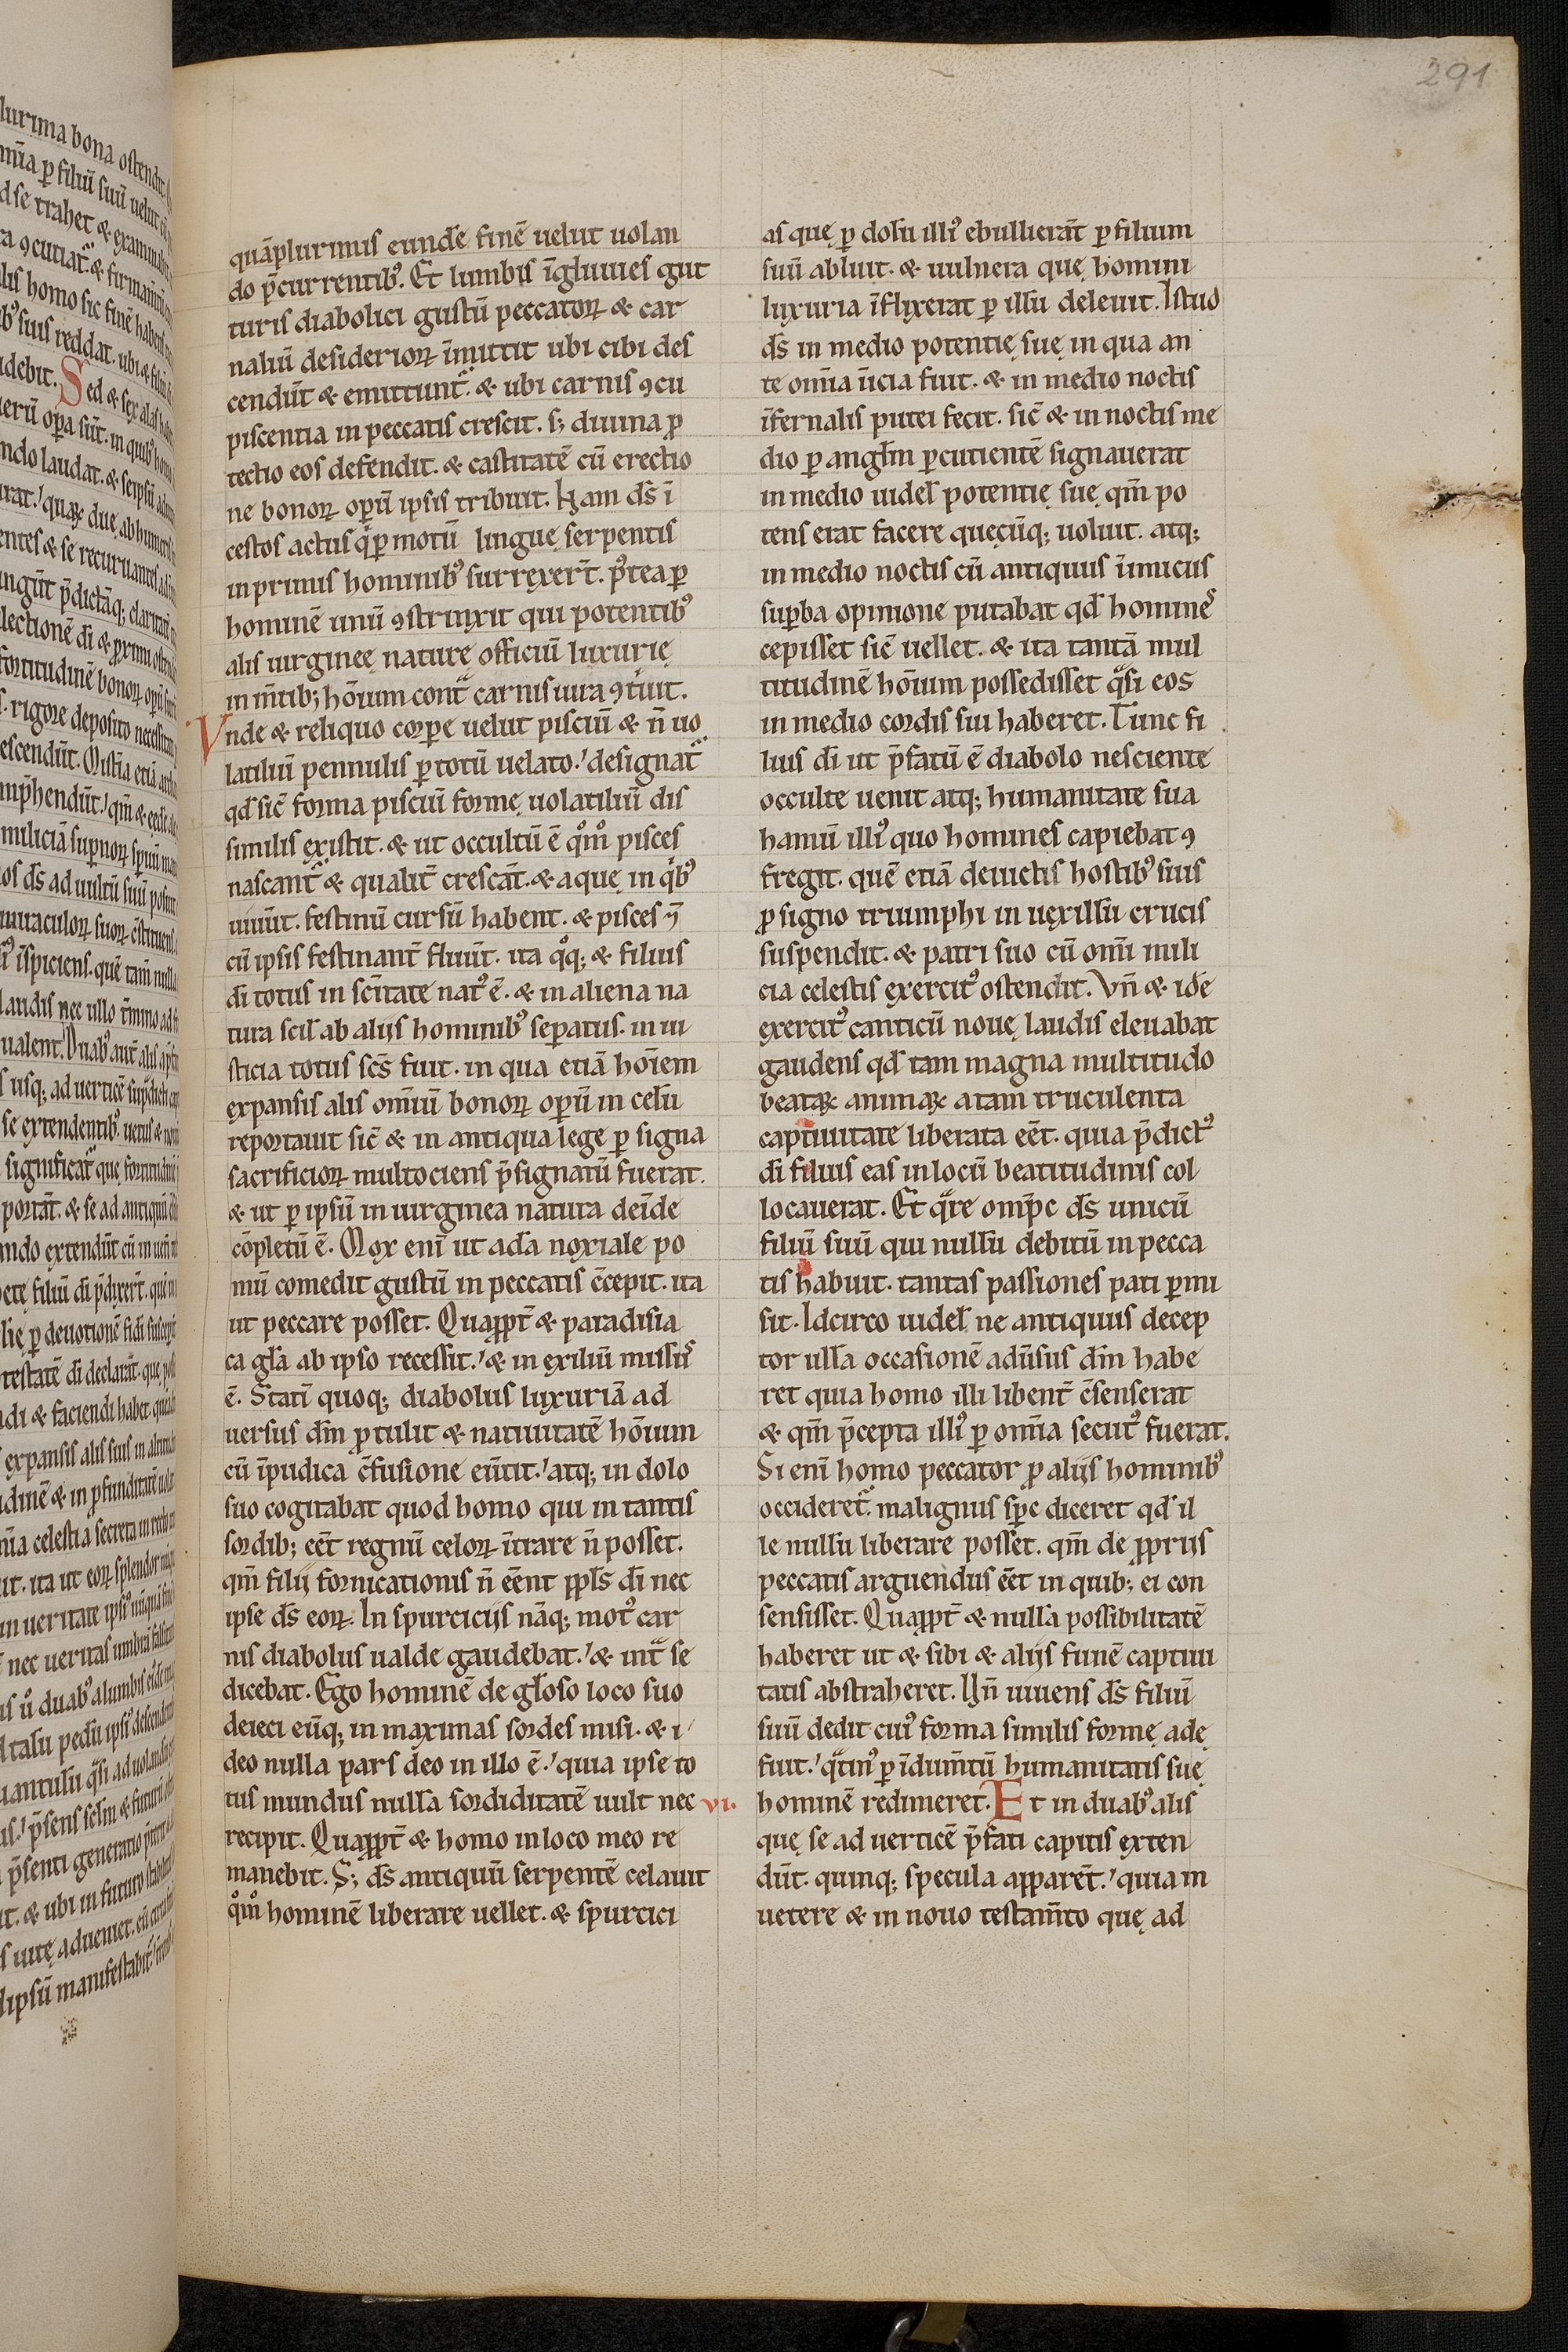 291
quāplurimis eundē finē uelut uolan
do p̄currentibꝰ. Et lumbis īgluuies gut
turis diabolici gustū peccatoꝝ & car
naliū desiderioꝝ īmittit ubi cibi des
cendūt & emittunt᷑. & ubi carnis ꝯcu
piscentia in peccatis crescit. s; diuina ꝓ
tectio eos defendit. & castitatē cū erectio
ne bonoꝝ opꝫ ipsis tribuit. Nam dꝰs ī
cestos actus qͥ ꝑ motū lingue serpentis
in primis hominibꝰ surrexer̄t. pꝰtea ꝑ
hominē unū ꝯstrinxit qui potentibꝰ
alis uirginee nature officiū luxurię
in m̄tib; hōium cont᷑ carnis iura ꝯtiuit.
Vnde & reliquo corꝑe uelut pisciū & n̄ uo
latiliū pennulis ꝑ totū uelato.ʼ designat᷑
qd̄ sic̄ forma pisciū formę uolatiliū dis
similis existit. & ut occultū ē qͦmͦ pisces
nascant᷑ & qualit̄ crescāt. & aque in qͥbꝰ
uiuūt. festinū cursū habent. & pisces ī
cū ipsis festinant᷑ fluūt. ita qͦq; & filius
di totus in sc̄itate natꝰ ē. & in aliena na
tura scil̄ ab alijs hominibꝰ seꝑatus. in iu
sticia totus sc̄s fuit. in qua etiā hōiem
expansis alis omīū bonoꝝ oꝑū in celū
reportauit sic̄ & in antiqua lege ꝑ signa
sacrificioꝝ multociens p̄signatū fuerat.
& ut ꝑ ipsū in uirginea natura deīde
cōpletū ē. Mox enī ut adā noxiale po
mū comedit gustū in peccatis c̄cepit. ita
ut peccare posset. Quaꝓpt̄ & paradisia
ca gl̄a ab ipso recessit.ʼ & in exiliū missꝰ
ē. Statī quoq; diabolus luxuriā ad
uersus dm̄ ꝓtulit & natiuitatē hōium
cū īpudica c̄fusione eūtit.ʼ atq; in dolo
suo cogitabat quod homo qui in tantis
sordib; eēt regnū celoꝝ ītrare n̄ posset.
qm̄ filij fornicationis n̄ eēnt ppl̄s di nec
ipse ds̄ eoꝝ. In spurcicijs nāq; motꝰ car
nis diabolus ualde gaudebat.ʼ & int᷑ se
dicebat. Ego hominē de gl̄oso loco suo
deieci eūq; in maximas sordes misi. & i
deo nulla pars deo in illo ē.ʼ quia ipse to
tus mundus nullā sordiditatē uult nec
recipit. Quaꝓpt̄ & homo in loco meo re
manebit. S; ds̄ antiquū serpentē celauit
qͦmͦ hominē liberare uellet. & spurcici
as quę ꝑ dolū illiꝰ ebullierāt ꝑ filium
suū abluit. & uulnera quę homini
luxuria īflixerat ꝑ illū deleuit. Istud
ds̄ in medio potentię suę in qua an
te omīa īicia fuit. & in medio noctis
īfernalis putei fecit. sic̄ & in noctis me
dio ꝑ angl̄m ꝑcutientē signauerat
in medio uidel̄ potentię sue qm̄ po
tens erat facere quęcūq; uoluit. atq;
in medio noctis cū antiquus īimicus
suꝑba opinione putabat qd̄ hominē
cepisset sic̄ uellet. & ita tantā mul
titudinē hōium possedisset qͣsi eos
in medio cordis sui haberet. Tunc fi
lius di ut p̄fatū ē diabolo nesciente
occulte uenit atq; humanitate sua
hamū illiꝰ quo homines capiebat ꝯ
fregit. quē etiā deuictis hostibꝰ suis
ꝓ signo triumphi in uexillū crucis
suspendit. & patri suo cū omī mili
cia celestis exercitꝰ ostendit. Vn̄ & idē
exercitꝰ canticū nouę laudis eleuabat
gaudens qd̄ tam magna multitudo
beataꝝ animaꝝ a tam truculenta
captiuitate liberata eēt. quia p̄dictꝰ
di filius eas in locū beatitudinis col
locauerat. Et qͣre omp̄c ds̄ unicū
filiū suū qui nullū debitū in pecca
tis habuit. tantas passiones pati ꝑmi
sit. Idcirco uidel̄ ne antiquus decep
tor ullā occasionē adūsus dm̄ habe
ret quia homo illi libent̄ c̄senserat
& qm̄ p̄cepta illiꝰ ꝑ omīa secutꝰ fuerat.
Si enī homo peccator ꝓ alijs hominibꝰ
occideret᷑. malignus sp̄c diceret qd̄ il
le nullū liberare posset. qm̄ de ꝓprijs
peccatis arguendus eēt in quib; ei con
sensisset. Quaꝓpt̄ & nullā possibilitatē
haberet ut & sibi & alijs funē captiui
tatis abstraheret. Vn̄ uiuens ds̄ filiū
suū dedit cuiꝰ forma similis formę adę
fuit.ʼ qͣtinꝰ ꝑ īdum̄tū humanitatis suę
vi. hominē redimeret. Et in duabꝰ alis
quę se ad uerticē p̄fati capitis exten
dūt. quinq; specula apparēt.ʼ quia in
uetere & in nouo testam̄to quę ad